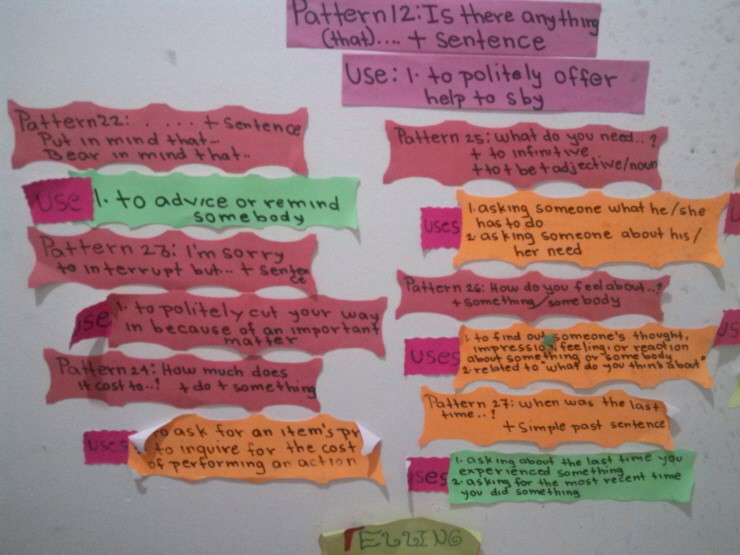 Pattern 12: Is there anything
(that).... + sentence
Use: 1. to politely offer
help to sby
Pattern 22: ...... + sentence
Put in mind that...
Bear in mind that..
Use
1. to advice or remind
somebody
Pattern 23: I'm sorry
to interrupt but... + sentence
se
1. to politely cut your way
in because of an important
matter
Pattern 24: How much does
it cost to..? + do + something
uses
to ask for an item's pr
to inquire for the cost
of performing an action
Pattern 25: what do you need..?
+ to infinitive
+ to + be + adjective/noun
uses
1. asking someone what he/she
has to do
2 asking someone about his/
her need
Pattern 26: How do you feel about..?
+ something/somebody
uses
1. to find out someone's thought,
impression, feeling, or reaction
about something or somebody
2. related to "what do you think about"
Pattern 27: when was the last
time..?
+ simple past sentence
ses
1. asking about the last time you
experienced something
2. asking for the most recent time
you did something
TELLING